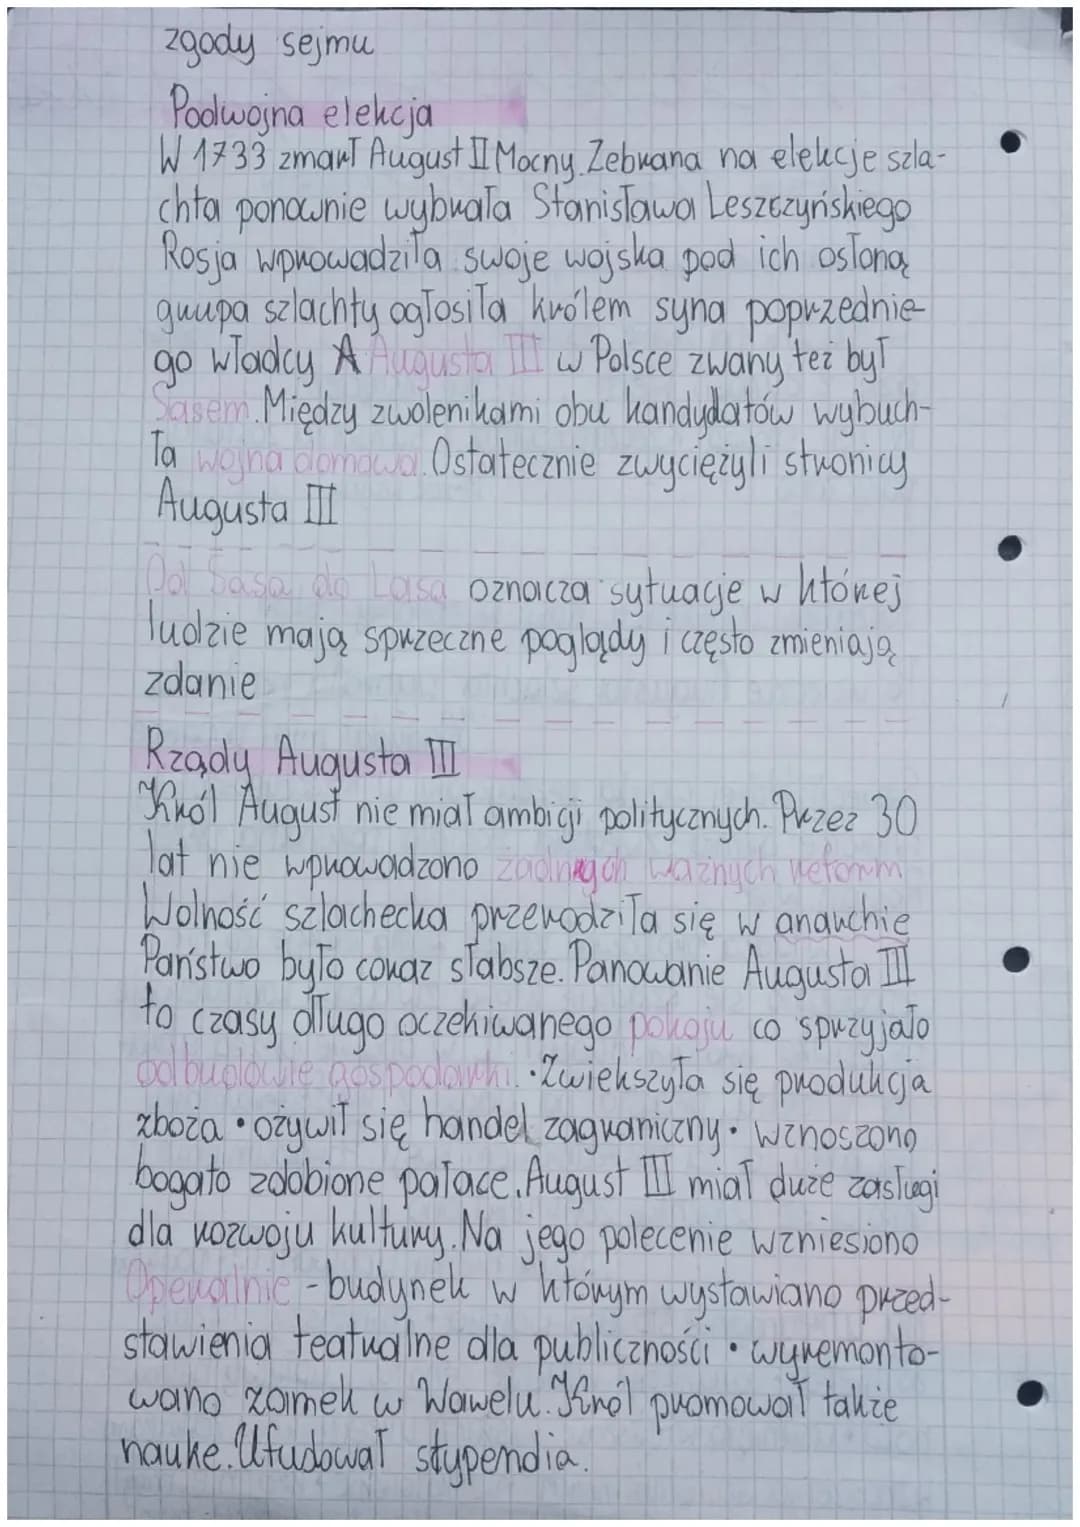 zgody sejmu
Podwojna elekcja
W 1733 zmarł August II Mocny. Zebrana na elekcje szla-
chta ponownie wybrała Stanisława Leszczyńskiego
Rosja wprowadziła swoje wojska pod ich osłoną
grupa szlachty ogłosiła królem syna poprzednie-
go władcy A Augusta III w Polsce zwany też był
Sasem. Między zwolenikami obu kandydatów wybuch-
ła wojna domowa. Ostatecznie zwyciężyli stronicy
Augusta III
Od Sasa do Lasa oznacza sytuacje w której
ludzie mają sprzeczne poglądy i często zmieniają
zdanie
Rządy Augusta III
Król August nie miał ambicji politycznych. Przez 30
lat nie wprowadzono żadnych ważnych reform
Wolność szlachecka przerodziła się w anarchie
Państwo było coraz słabsze. Panowanie Augusta III
to czasy długo oczekiwanego pokoju co sprzyjało
odbudowie gospodarki. •Zwiekszyła się produkcja
zboża • ożywił się handel zagraniczny • wznoszono
bogato zdobione pałace. August III miał duże zasługi
dla rozwoju kultury. Na jego polecenie wzniesiono
Operalnie - budynek w którym wystawiano przed-
stawienia teatralne dla publiczności • wyremonto-
wano zamek w Wawelu. Król promował także
nauke. Ufudował stypendia.